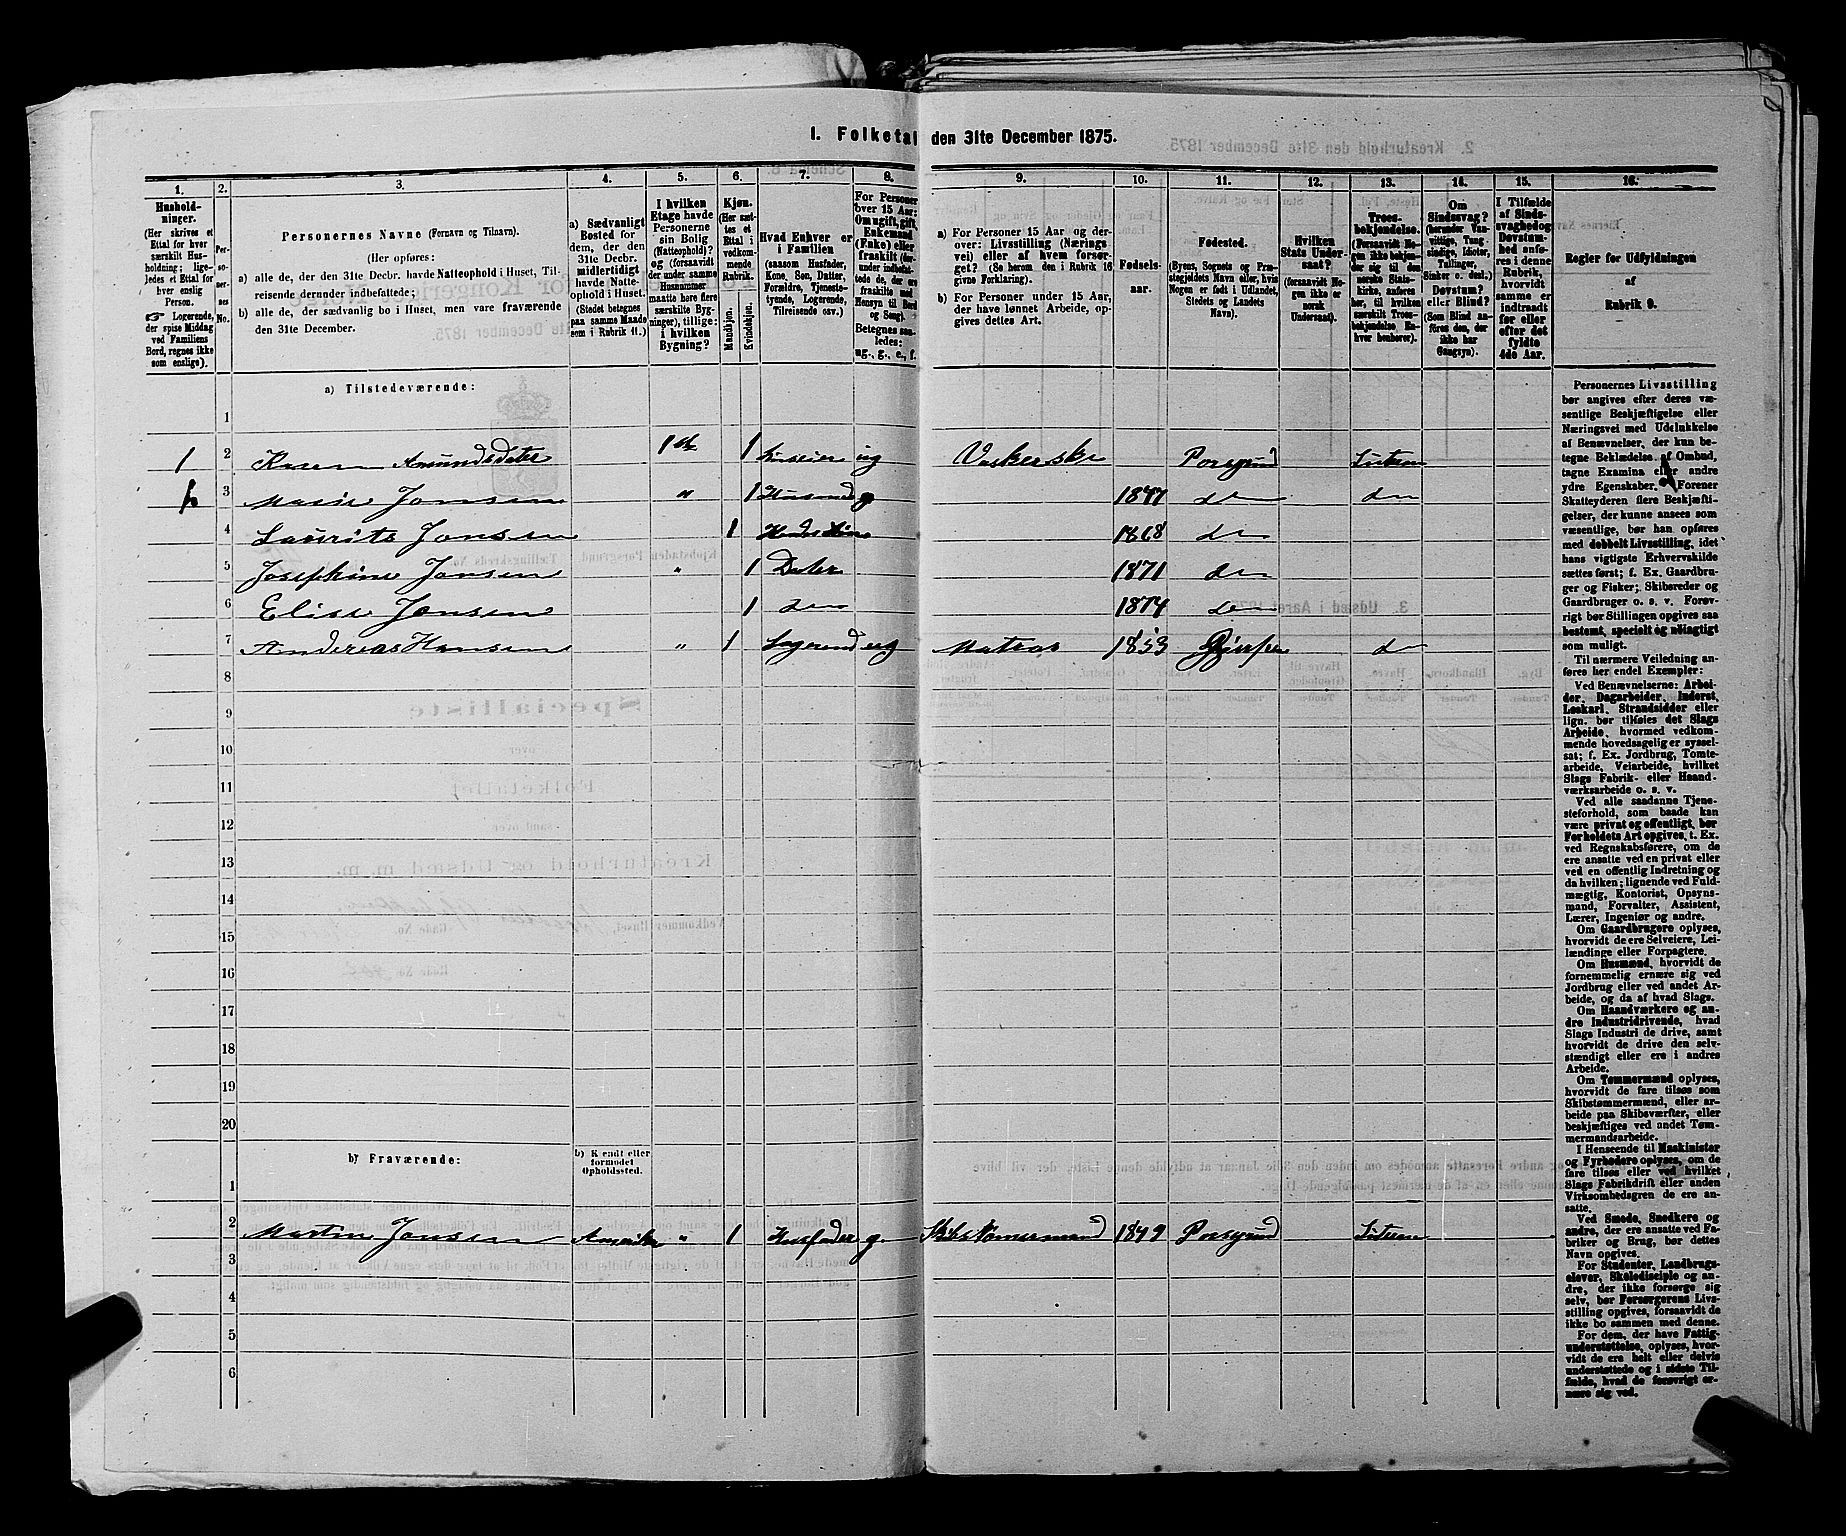 1. Folketal den 31te December 1875.
1. 2. 3. 4. 5. 6. 7. 8. 9. 10. 11. 12. 13. 14. 15. 16.
Hushold-
ninger.
(Her skrives et
Ettal for hver
særskilt Hus-
holdning; lige-
ledes et Ettal for
hver enslig
Person.
Logerende,
der spise Middag
ved Familiens
Bord, regnes ikke
som enslige).
Per-
so-
ner-
nes
No.
Personernes Navne (Fornavn og Tilnavn).
(Her opføres:
a) alle de, der den 31te Decbr. havde Natteophold i Huset, Til-
reisende derunder indbefattede;
b) alle de, der sædvanlig bo i Huset, men vare fraværende
den 31te December.
a) Sædvanligt
Bosted for
dem, der den
31te Decbr.
midlertidigt
havde Natte-
ophold i Huset.
(Stedet betegnes
paa samme Maade
som i Rubrik 11.)
I hvilken
Etage havde
Personerne
sin Bolig
(Natteophold)?
og (forsaavidt
under samme
Husnummer
maatte høre flere
særskilte Byg-
ninger), tillige:
i hvilken
Bygning?
Kjøn.
(Her sæt-
tes et
Ettal i
vedkom-
mende
Rubrik.
Mandkjøn.
Kvindekjøn.
Hvad Enhver er
i Familien
(saasom Husfader,
Kone, Søn, Datter,
Forældre, Tjeneste-
tyende, Logerende,
Tilreisende osv.)
For Personer
over 15 Aar:
Om ugift, gift,
Enkemand
(Enke) eller
fraskilt (der-
under indbefat-
tede, der ere
fraskilte med
Hensyn til Bord
og Seng).
Betegnes saa-
ledes:
ug., g., e., f.
a) For Personer 15 Aar og der-
over: Livsstilling (Nærings
vei) eller af hvem forsør-
get? (Se herom den i Rubrik 16
givne Forklaring).
b) For Personer under 15 Aar,
der have lønnet Arbeide, op-
gives dettes Art.
Fødsels-
aar.
Fødested.
(Byens, Sognets og Præ-
stegjeldets Navn eller, hvis
Nogen er født i Udlandet,
Stedets og Landets
Navn).
Hvilken
Stats Under-
saat?
(forsaavidt No-
gen ikke er
norsk
Undersaat).
Troes-
bekjendelse.
(Forsaavidt No-
gen ikke bekjen-
der sig til den
norske Stats-
kirke, anføres
her, til hvilken
særskilt Troes-
bekjendelse En-
hver henhører).
Om
Sindssvag?
(herunder Van-
vittige, Tung-
sindige, Idioter,
Tullinger,
Sinker o. desl.)
Døvstum?
eller Blind?
(Som Blind an-
føres den, der
ikke har
Gangsyn).
I Tilfælde
af Sinds-
svaghed og
Døvstum-
hed anfø-
res i denne
Rubrik,
hvorvidt
samme er
indtraadt
før eller
efter det
fyldte
4de Aar.
Regler for Udfyldningen
af
Rubrik 9.
a) Tilstedeværende:
1
1 2 Karen Amundsdater 1 st 1 ug Vaskerske Porsgrund Lutern
3 Marie Jonsen " 1 Husmod g 1847 do do
4 Laurits Jonsen 1 1868 do
5 Josephine Jonsen " 1 Dater 1871 do
6 Elise Jonsen 1 do 1874 do
7 Andreas Hansen " 1 Logerend ug Matros 1853 Gjerpen do
8
9
10
11
12
13
14
15
16
17
18
19
20
b) Fraværende:
b) Kjendt eller
formodet
Opholdssted.
1
2 Martin Jonsen Amerika " 1 Husfader g. Skibstømermand 1849 Porsgrund Lutern
3
4
5
6
Personernes Livsstilling
bør angives efter deres væ-
sentlige Beskjæftigelse eller
Næringsvei med Udelukkelse
af Benævnelser, der kun be-
tegne Beklædelse af Ombud,
tagne Examina eller andre
ydre Egenskaber. Forener
Skatteyderen flere Beskjæfti-
gelser, der kunne ansees som
væsentlige, bør han opføres
med dobbelt Livsstilling, idet
hans vigtigste Erhvervskilde
sættes først; f. Ex. Gaardbru-
ger og Fisker; Skibsreder og
Gaardbruger o. s. v. Forøv-
rigt bør Stillingen opgives saa
bestemt, specielt og nøiagtigt
som muligt.
Til nærmere Veiledning an-
føres her endel Exempler:
Ved Benævnelserne: Arbei-
der, Dagarbeider, Inderst,
Løskarl, Strandsidder eller
lign. bør tilføies det Slags
Arbeide, hvormed vedkom-
mende hovedsagelig er syssel-
sat; f. Ex. Jordbrug, Tomte-
arbeide, Veiarbeide, hvilket
Slags Fabrik- eller Haand-
værksarbeide o. s. v.
Ved alle saadanne Tjene-
steforhold, som baade kan
være privat og offentligt, bør
Forholdets Art opgives, t. Ex.
ved Regnskabsførere, om de
ere ansatte ved en privat eller
ved en offentlig Indretning og
da hvilken; lignende ved Fuld-
mægtig, Kontorist, Opsyns-
mand, Forvalter, Assistent,
Lærer, Ingeniør og andre.
Om Gaardbrugere oplyses,
hvorvidt de ere Selveiere, Lei-
lændinge eller Forpagtere.
Om Husmænd, hvorvidt de
fornemmelig ernære sig ved
Jordbrug eller ved andet Ar-
beide, og da af hvad Slags.
Om Haandværkere og an-
dre Industridrivende, hvad
Slags Industri de drive, samt
hvorvidt de drive den selv-
stændigt eller ere i andres
Arbeide.
Om Tømmermænd oplyses,
hvorvidt de fare tilsøs som
Skibstømmermænd, eller ar-
beide paa Skibsværfter, eller
beskjæftiges ved andet Tøm-
mermandsarbeide.
I Henseende til Maskinister
og Fyrbødere oplyses, om de
fare tilsøs eller ved hvilket
Slags Fabrikdrift eller anden
Virksombedsgren de ere an-
satte.
Ved Smede, Snedkere og
andre, der ere ansatte ved Fa-
briker og Brug, bør dettes
Navn opgives.
For Studenter, Landbrugs-
elever, Skoledisciple og an-
dre, der ikke forsørge sig
selv, bør Forsørgerens Livs-
stilling opgives, forsaavidt de
ikke bo sammen med denne.
For dem, der have Fattig-
understøttelse, oplyses, hvor-
vidt de ere helt eller delvis
understøttede og i sidste Til-
fælde, hvad de forøvrigt er-
nære sig ved.